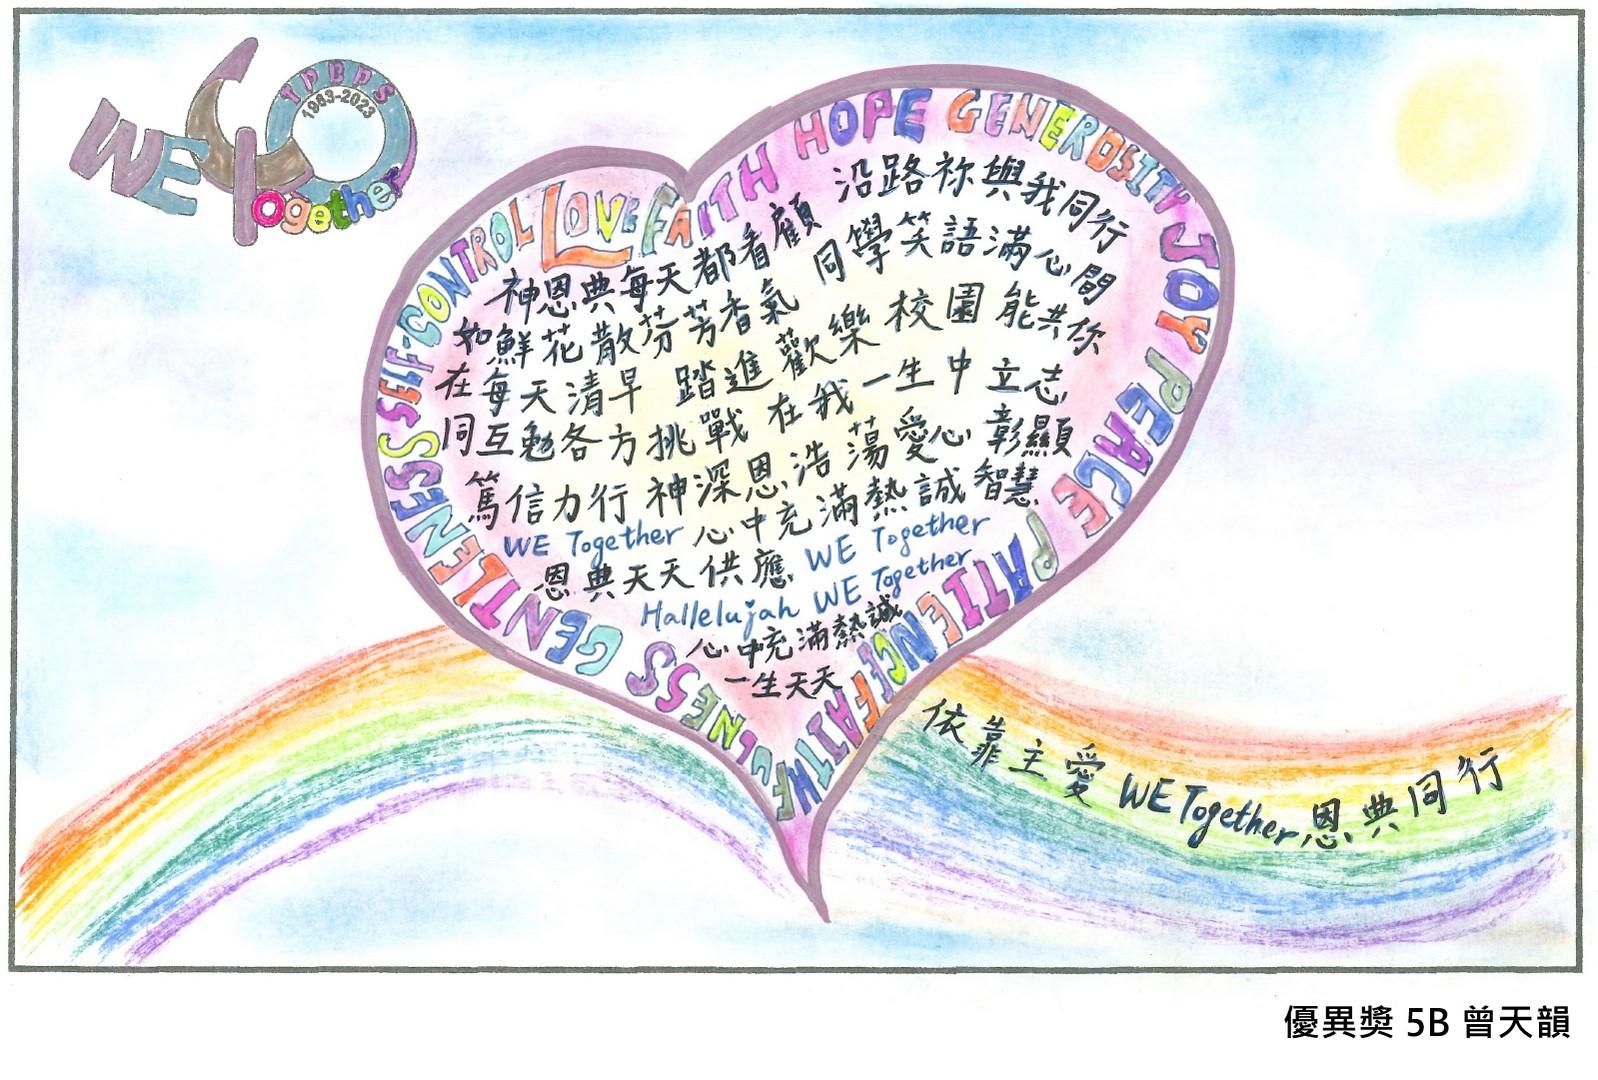 WE 40 Together
TPBPS
1983-2023
SELF-CONTROL LOVE FAITH HOPE GENEROSITY JOY PEACE PATIENCE FAITHFULNESS GENTLENESS
神恩典每天都看顧 沿路祢與我同行
如鮮花散芬芳香氣 同學笑語滿心間
在每天清早 踏進歡樂校園 能共你
同互勉各方挑戰 在我一生中立志
篤信力行 神深恩浩蕩愛心彰顯
WE Together 心中充滿熱誠智慧
恩典天天供應 WE Together
Hallelujah WE Together
心中充滿熱誠
一生天天
依靠主愛 WE Together 恩典同行
優異獎 5B 曾天韻